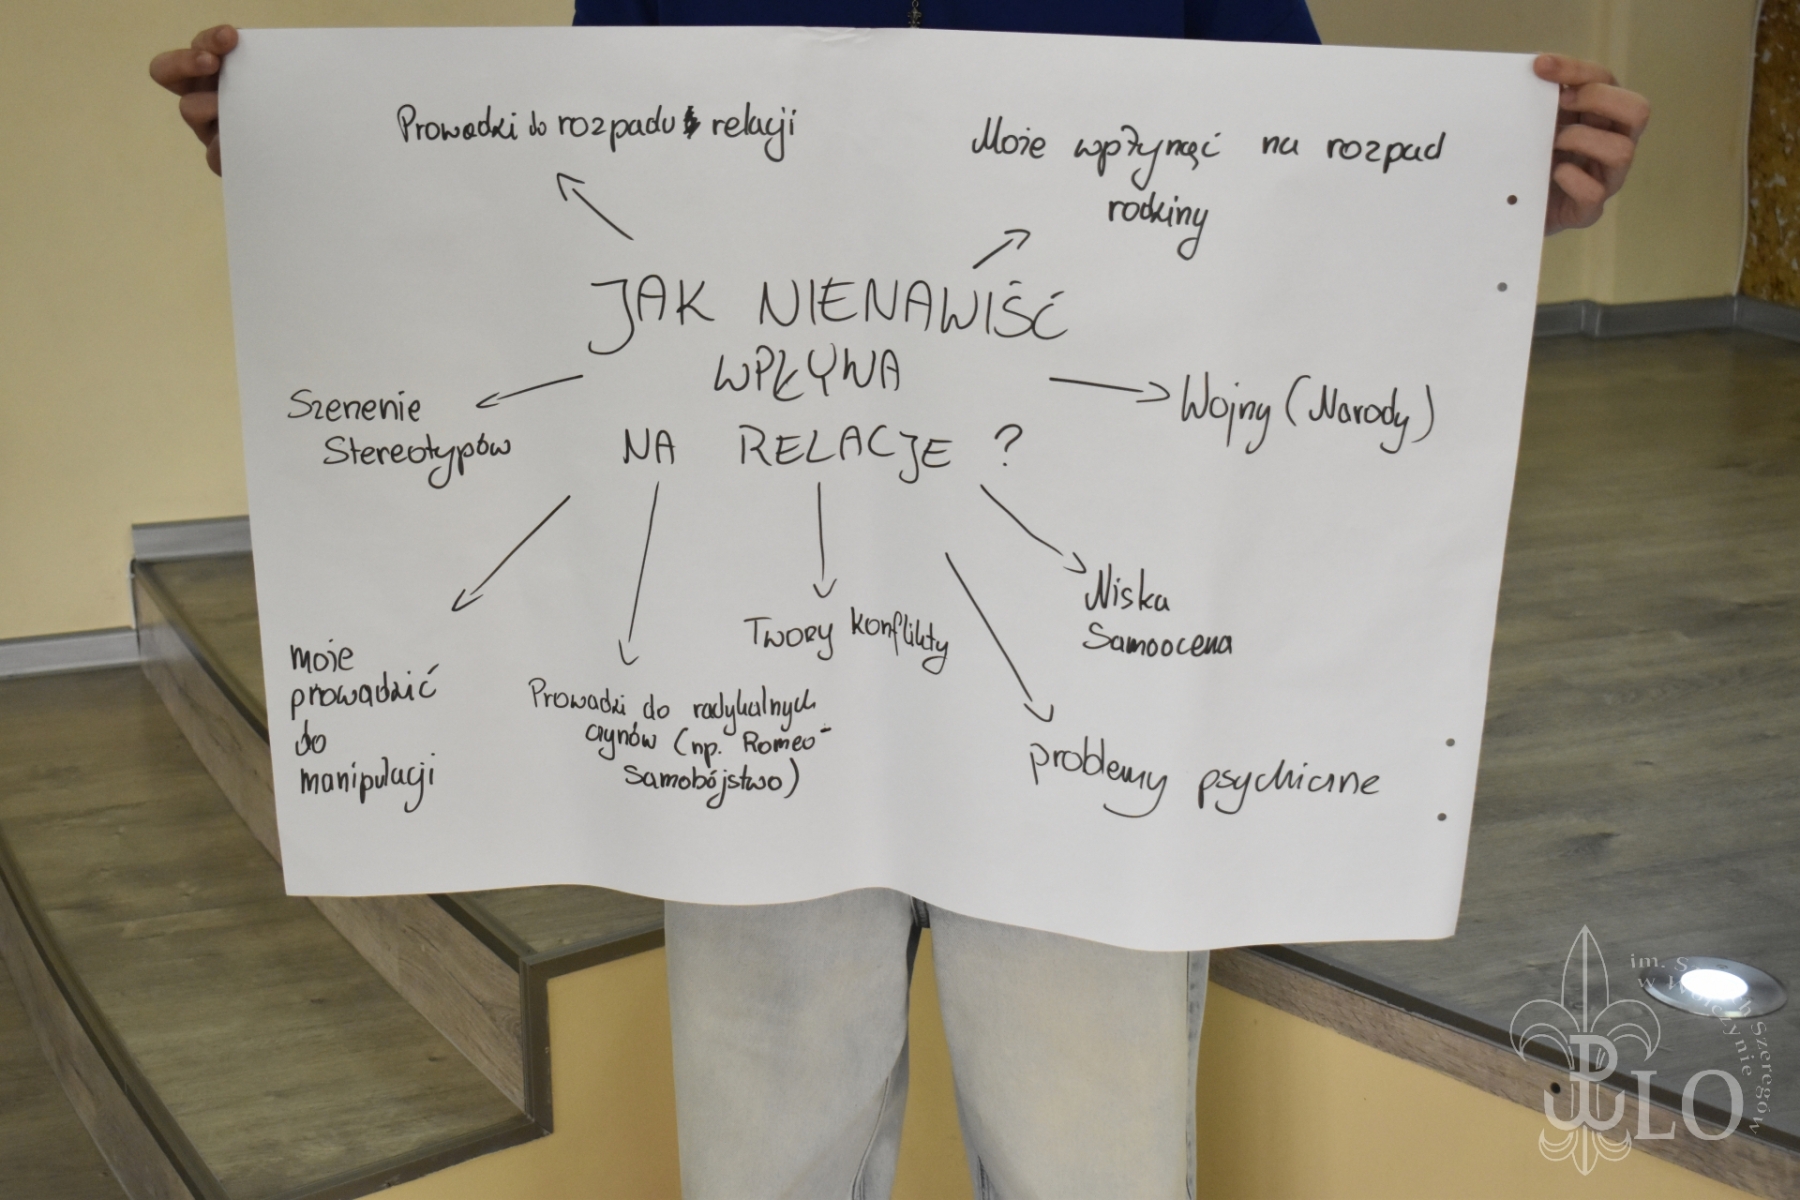 Prowadzi do rozpadu relacji
Może wpłynąć na rozpad
rodziny
JAK NIENAWIŚĆ
WPŁYWA
NA RELACJE ?
Szerzenie
Stereotypów
Wojny (Narody)
Niska
Samoocena
Tworzy konflikty
może
prowadzić
do
manipulacji
Prowadzi do radykalnych
czynów (np. Romeo -
Samobójstwo)
problemy psychiczne
im. S
w Wałczynie
Szeregów
PLO